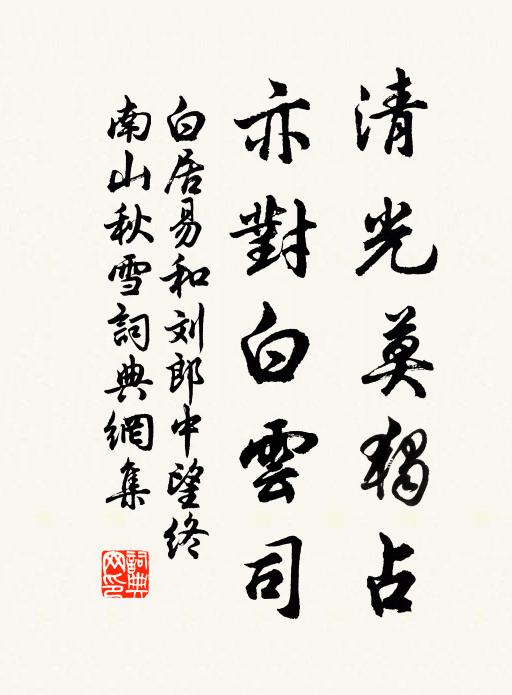 清光莫獨占
亦對白雲司
白居易和刘郎中望终
南山秋雪詞典網集
詞典
网印